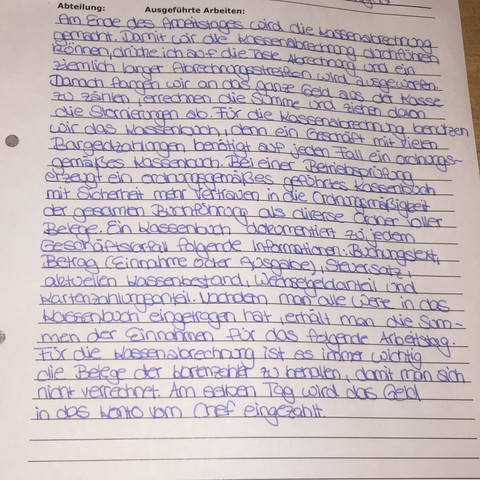 Abteilung: Ausgeführte Arbeiten:
Am Ende des Arbeitstages wird die Kassenabrechnung
gemacht. Damit wir die Kassenabrechnung durchführen
können, drücke ich auf die Taste Abrechnung und ein
ziemlich langer Abrechnungsstreifen wird ausgeworfen.
Danach fangen wir an das ganze Geld aus der Kasse
zu zählen, errechnen die Summe und ziehen dann
die Stornierungen ab. Für die Kassenabrechnung benutzen
wir das Kassenbuch, denn ein Geschäft mit vielen
Bargeldzahlungen benötigt auf jeden Fall ein ordnungs-
gemäßes Kassenbuch. Bei einer Betriebsprüfung
erzeugt ein ordnungsgemäßes geführtes Kassenbuch
mit Sicherheit mehr Vertrauen in die Ordnungsmäßigkeit
der gesamten Buchführung als diverse Ordner voller
Belege. Ein Kassenbuch dokumentiert zu jedem
Geschäftsvorfall folgende Informationen: Buchungstext,
Betrag (Einnahme oder Ausgabe), Steuersatz,
aktuellen Kassenbestand, Wechselgeldanteil und
Kartenzahlungsanteil. Nachdem man alle Werte in das
Kassenbuch eingetragen hat, erhält man die Sum-
men der Einnahmen für das folgende Arbeitstag.
Für die Kassenabrechnung ist es immer wichtig
die Belege der Kartenzahlt zu behalten, damit man sich
nicht verrechnet. Am selben Tag wird das Geld
in das Konto vom Chef eingezahlt.